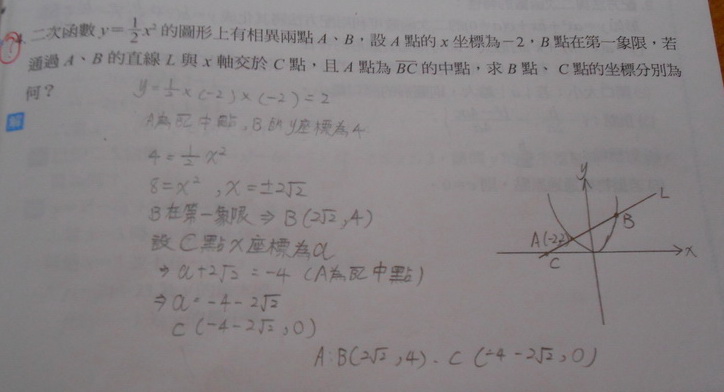 二次函數 y = 1/2 x² 的圖形上有相異兩點 A、B，設 A 點的 x 坐標為 −2，B 點在第一象限，若
通過 A、B 的直線 L 與 x 軸交於 C 點，且 A 點為 BC 的中點，求 B 點、C 點的坐標分別為
何？
y = 1/2 × (-2) × (-2) = 2
A為BC中點，B的y座標為4
4 = 1/2 x²
8 = x² , x = ±2√2
B在第一象限 ⇒ B(2√2, 4)
設C點x座標為a
⇒ a+2√2 = -4 (A為BC中點)
⇒ a = -4-2√2
C(-4-2√2, 0)
y
L
B
A(-2,2)
x
C
A: B(2√2, 4)、C(-4-2√2, 0)